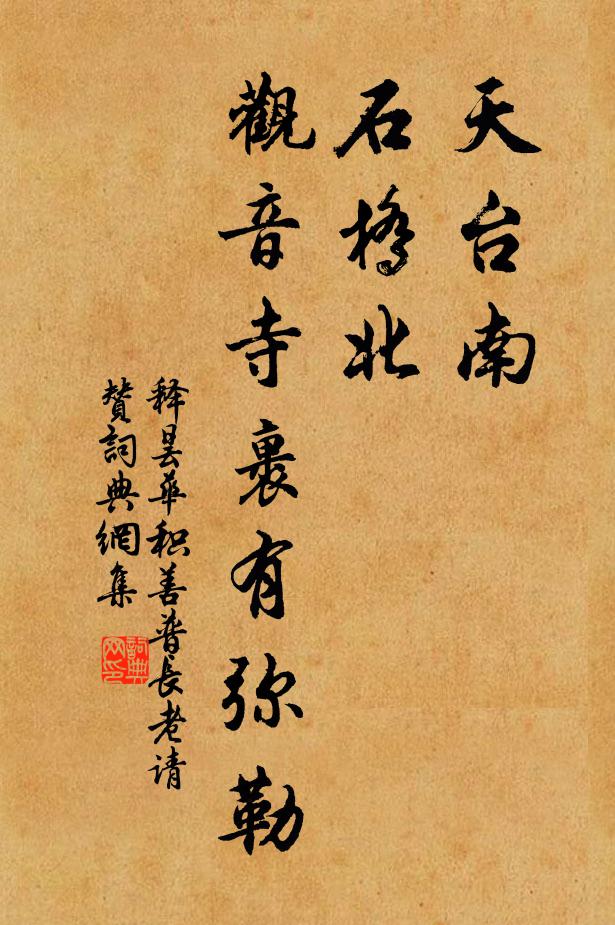 天台南
石橋北
觀音寺裹有弥勒
释昙华积善普长老请
贊詞典網集
詞典
网印